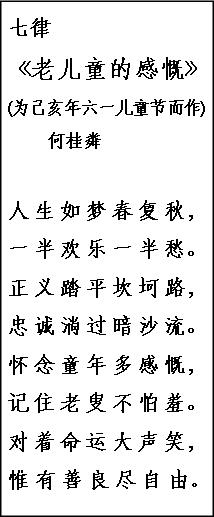 七律
《老儿童的感慨》
(为己亥年六一儿童节而作)
何桂粦
人生如梦春复秋，
一半欢乐一半愁。
正义踏平坎坷路，
忠诚淌过暗沙流。
怀念童年多感慨，
记住老叟不怕羞。
对着命运大声笑，
惟有善良尽自由。